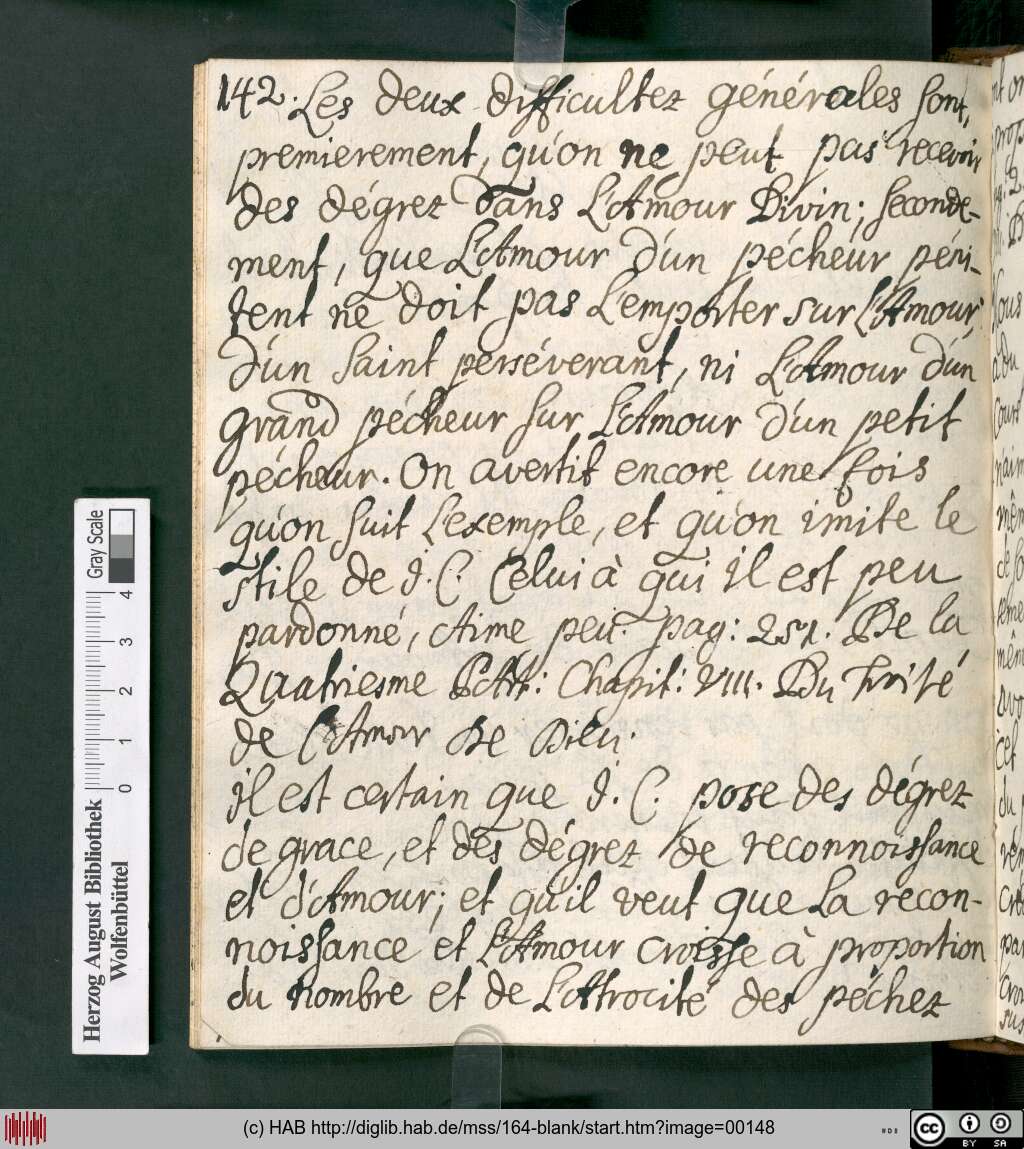 142. Les deux difficultez générales sont,
premierement, qu'on ne peut pas recevoir
des dégrez dans L'Amour Divin; seconde-
ment, que L'Amour d'un pécheur péni-
tent ne doit pas L'emporter sur L'Amour
d'un saint perséverant, ni L'Amour d'un
grand pécheur sur L'Amour d'un petit
pécheur. On avertit encore une fois
qu'on suit L'exemple, et qu'on imite le
stile de J. C. Celui à qui il est peu
pardonné, Aime peu. pag: 251. De la
Quatriesme PArt: Chapit: VIII. Du Traité
de L'Amour De Dieu.
il est certain que J. C. pose des dégrez
de grace, et des dégrez de reconnoissance
et d'Amour; et qu'il veut que La recon-
noissance et L'Amour croisse à proportion
du nombre et de L'Attrocité des péchez
Herzog August Bibliothek
Wolfenbüttel
0 1 2 3 4
Gray Scale
(c) HAB http://diglib.hab.de/mss/164-blank/start.htm?image=00148
cc BY SA